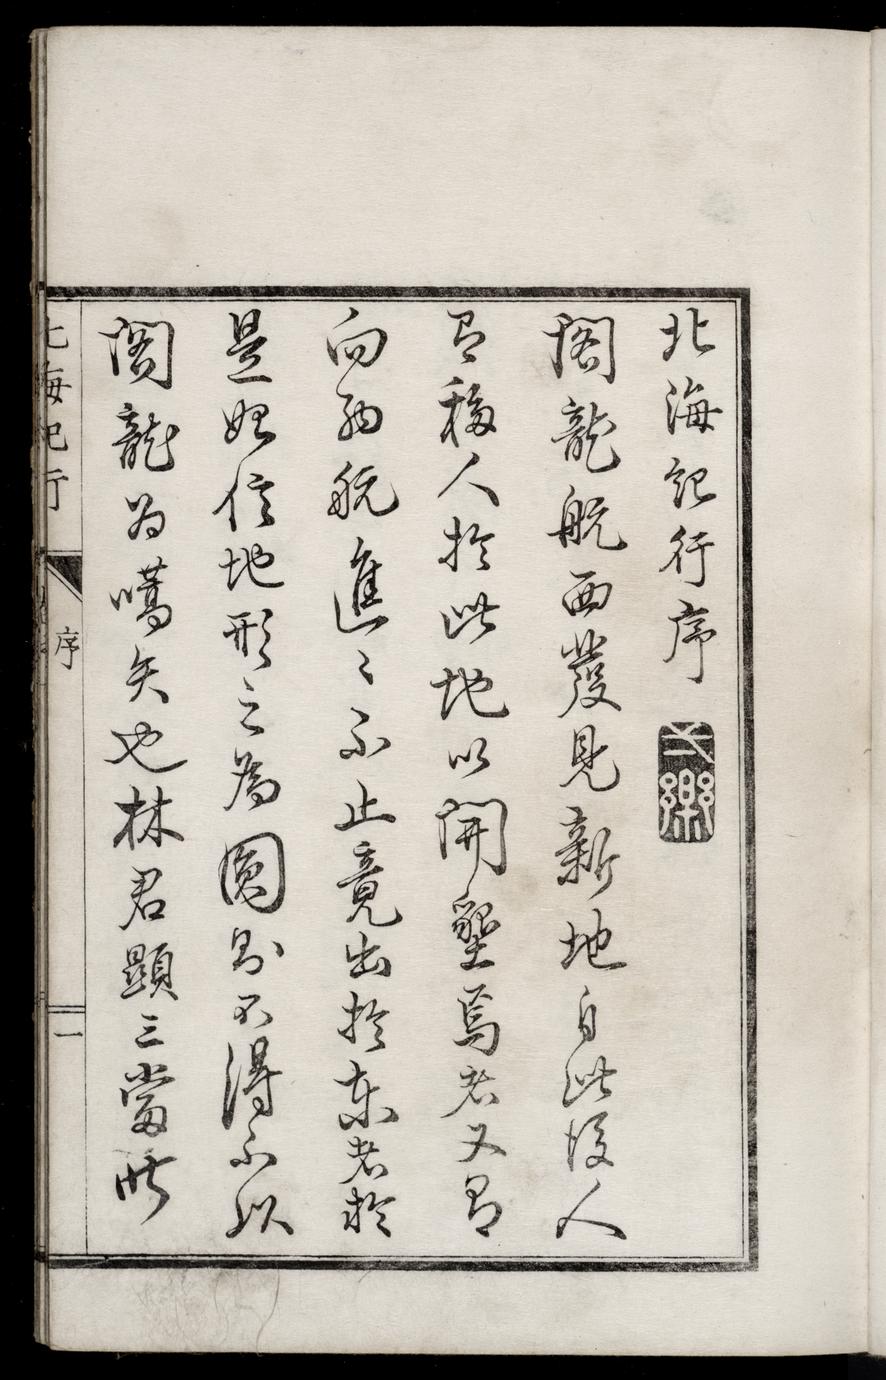 北海記行序
閣龍航西發見新地自此後人
有移人於此地以開墾焉者又有
向航進〻不止竟出於東者於
是始信地形之為圓則不得不以
閣龍為嚆矢也林君顯三當此
北海紀行
序
一